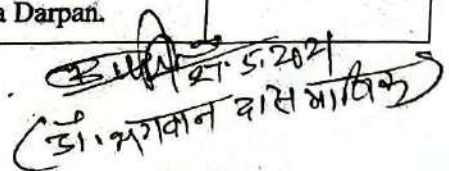 a Darpan.
5.2021
(डॉ. भगवान दास माणिक)